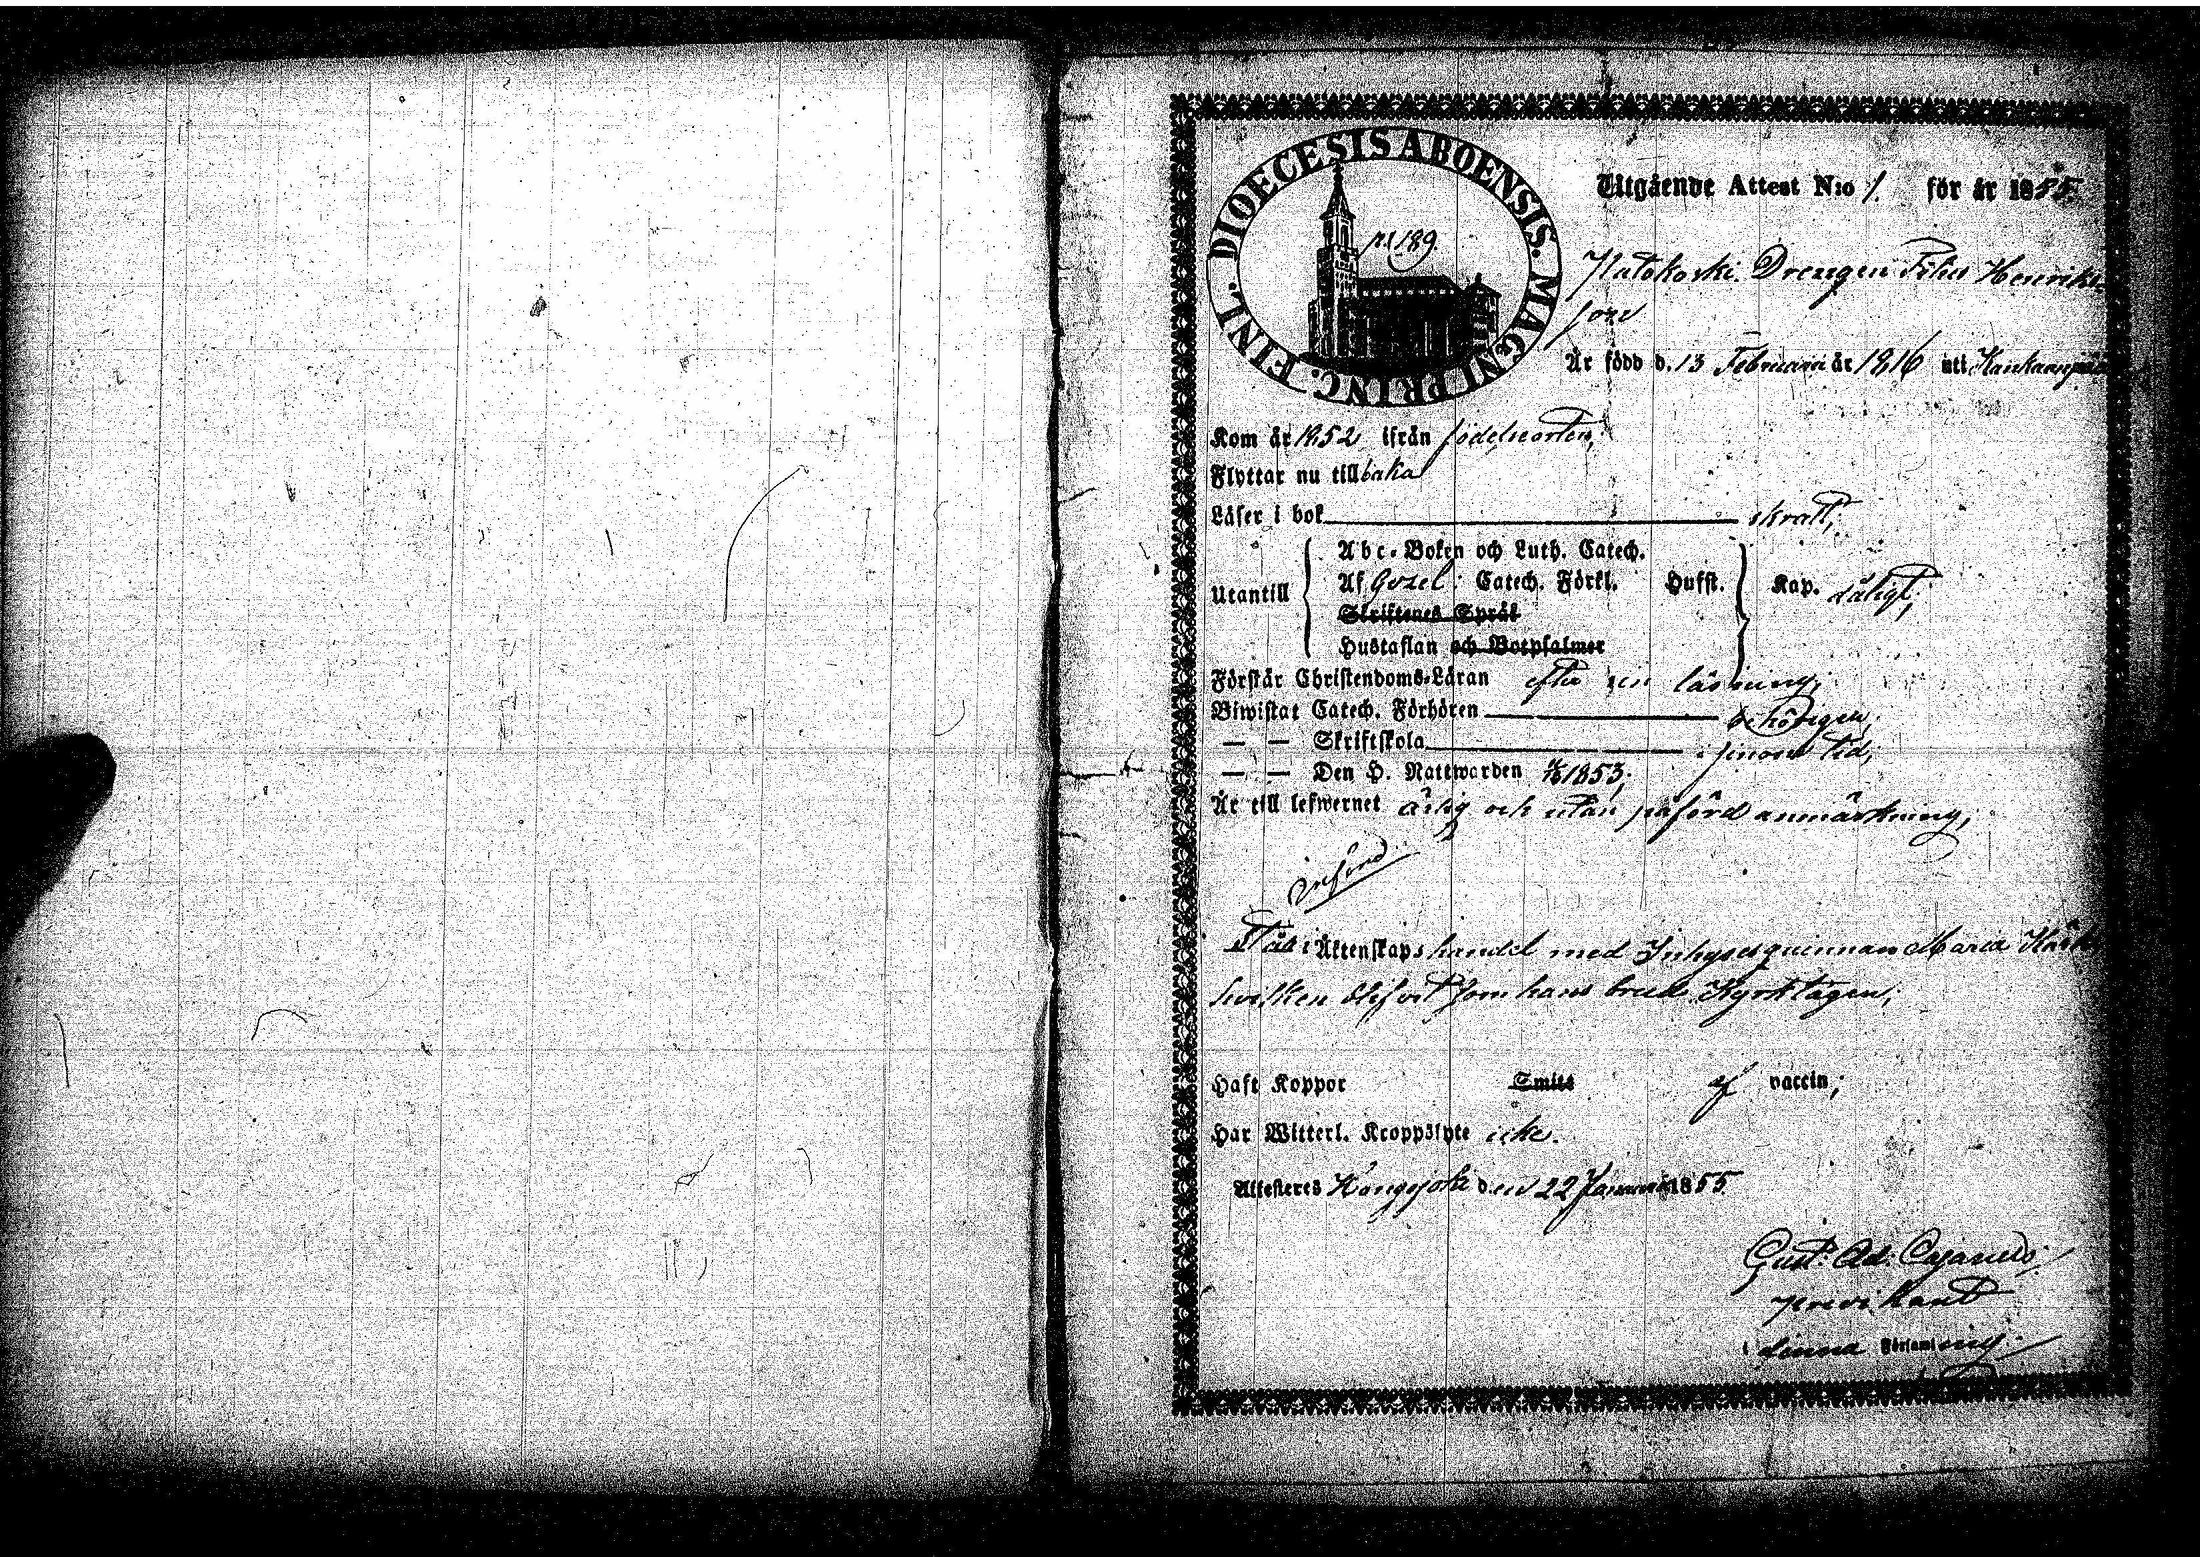 DIOECESIS ABOENSIS. MAGNI PRINC. FINL.
Utgående Attest N:o 1. för år 1855.
n:189
Katokoski Drengen Filus Henriks-
son
Är född d. 13 Februari år 1816 uti Kankaanpää
Kom år 1852 ifrån födelseorten,
Flyttar nu tillbaka
Läser i bok svatt,
Abc-Boken och Luth. Catech.
Utantill Af Gezel: Catech. Förkl. Hufst. Kap. dåligt,
Skriftenes Språk
Hustaflan och Botpsalmer
Förstår Christendoms-Läran efter sin läsning,
Biwistat Catech. Förhören behörigen,
— — Skriftskola sinom tid,
— — Den H. Nattwarden 1853.
Är till lefwernet ärlig och utan påförd anmärkning,
införd
Står i Äktenskaps handel med Inhysesquinnan Maria
hvilken blifvit som hans brud Kyrktagen,
Haft Koppor Smitt af vaccin,
Har Witterl. Kroppslyte icke.
Attesteres Hongojoki den 22 Januari 1855.
Gust. Ad. Cajanus,
predikant
i denna Församling.